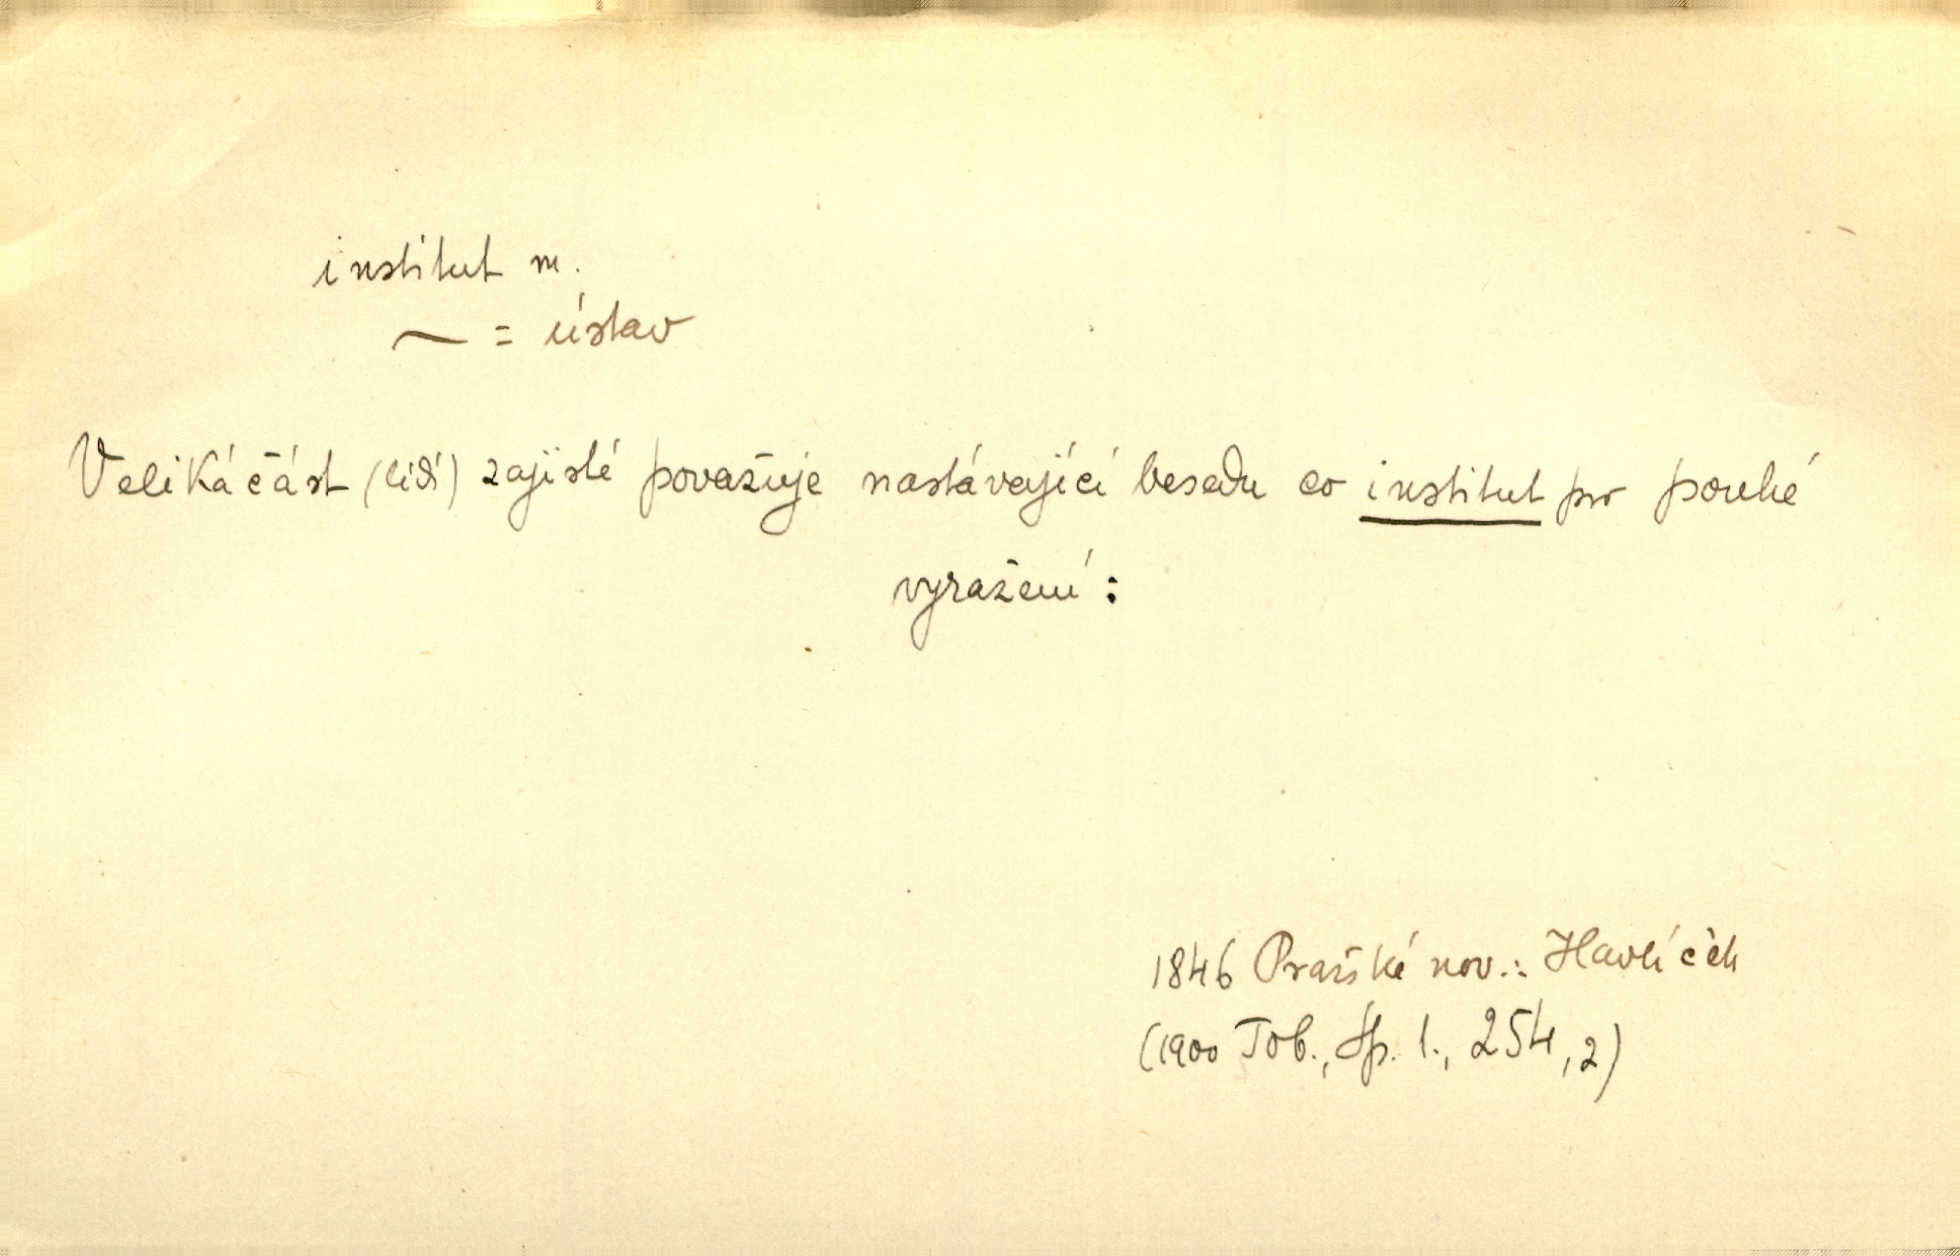 institut m.
~ = ústav
Veliká část (lidí) zajisté považuje nastávající besedu co institut pro pouhé
vyražení :
1846 Pražské nov.: Havlíček
(1900 Tob., Sp. 1., 254, 2)